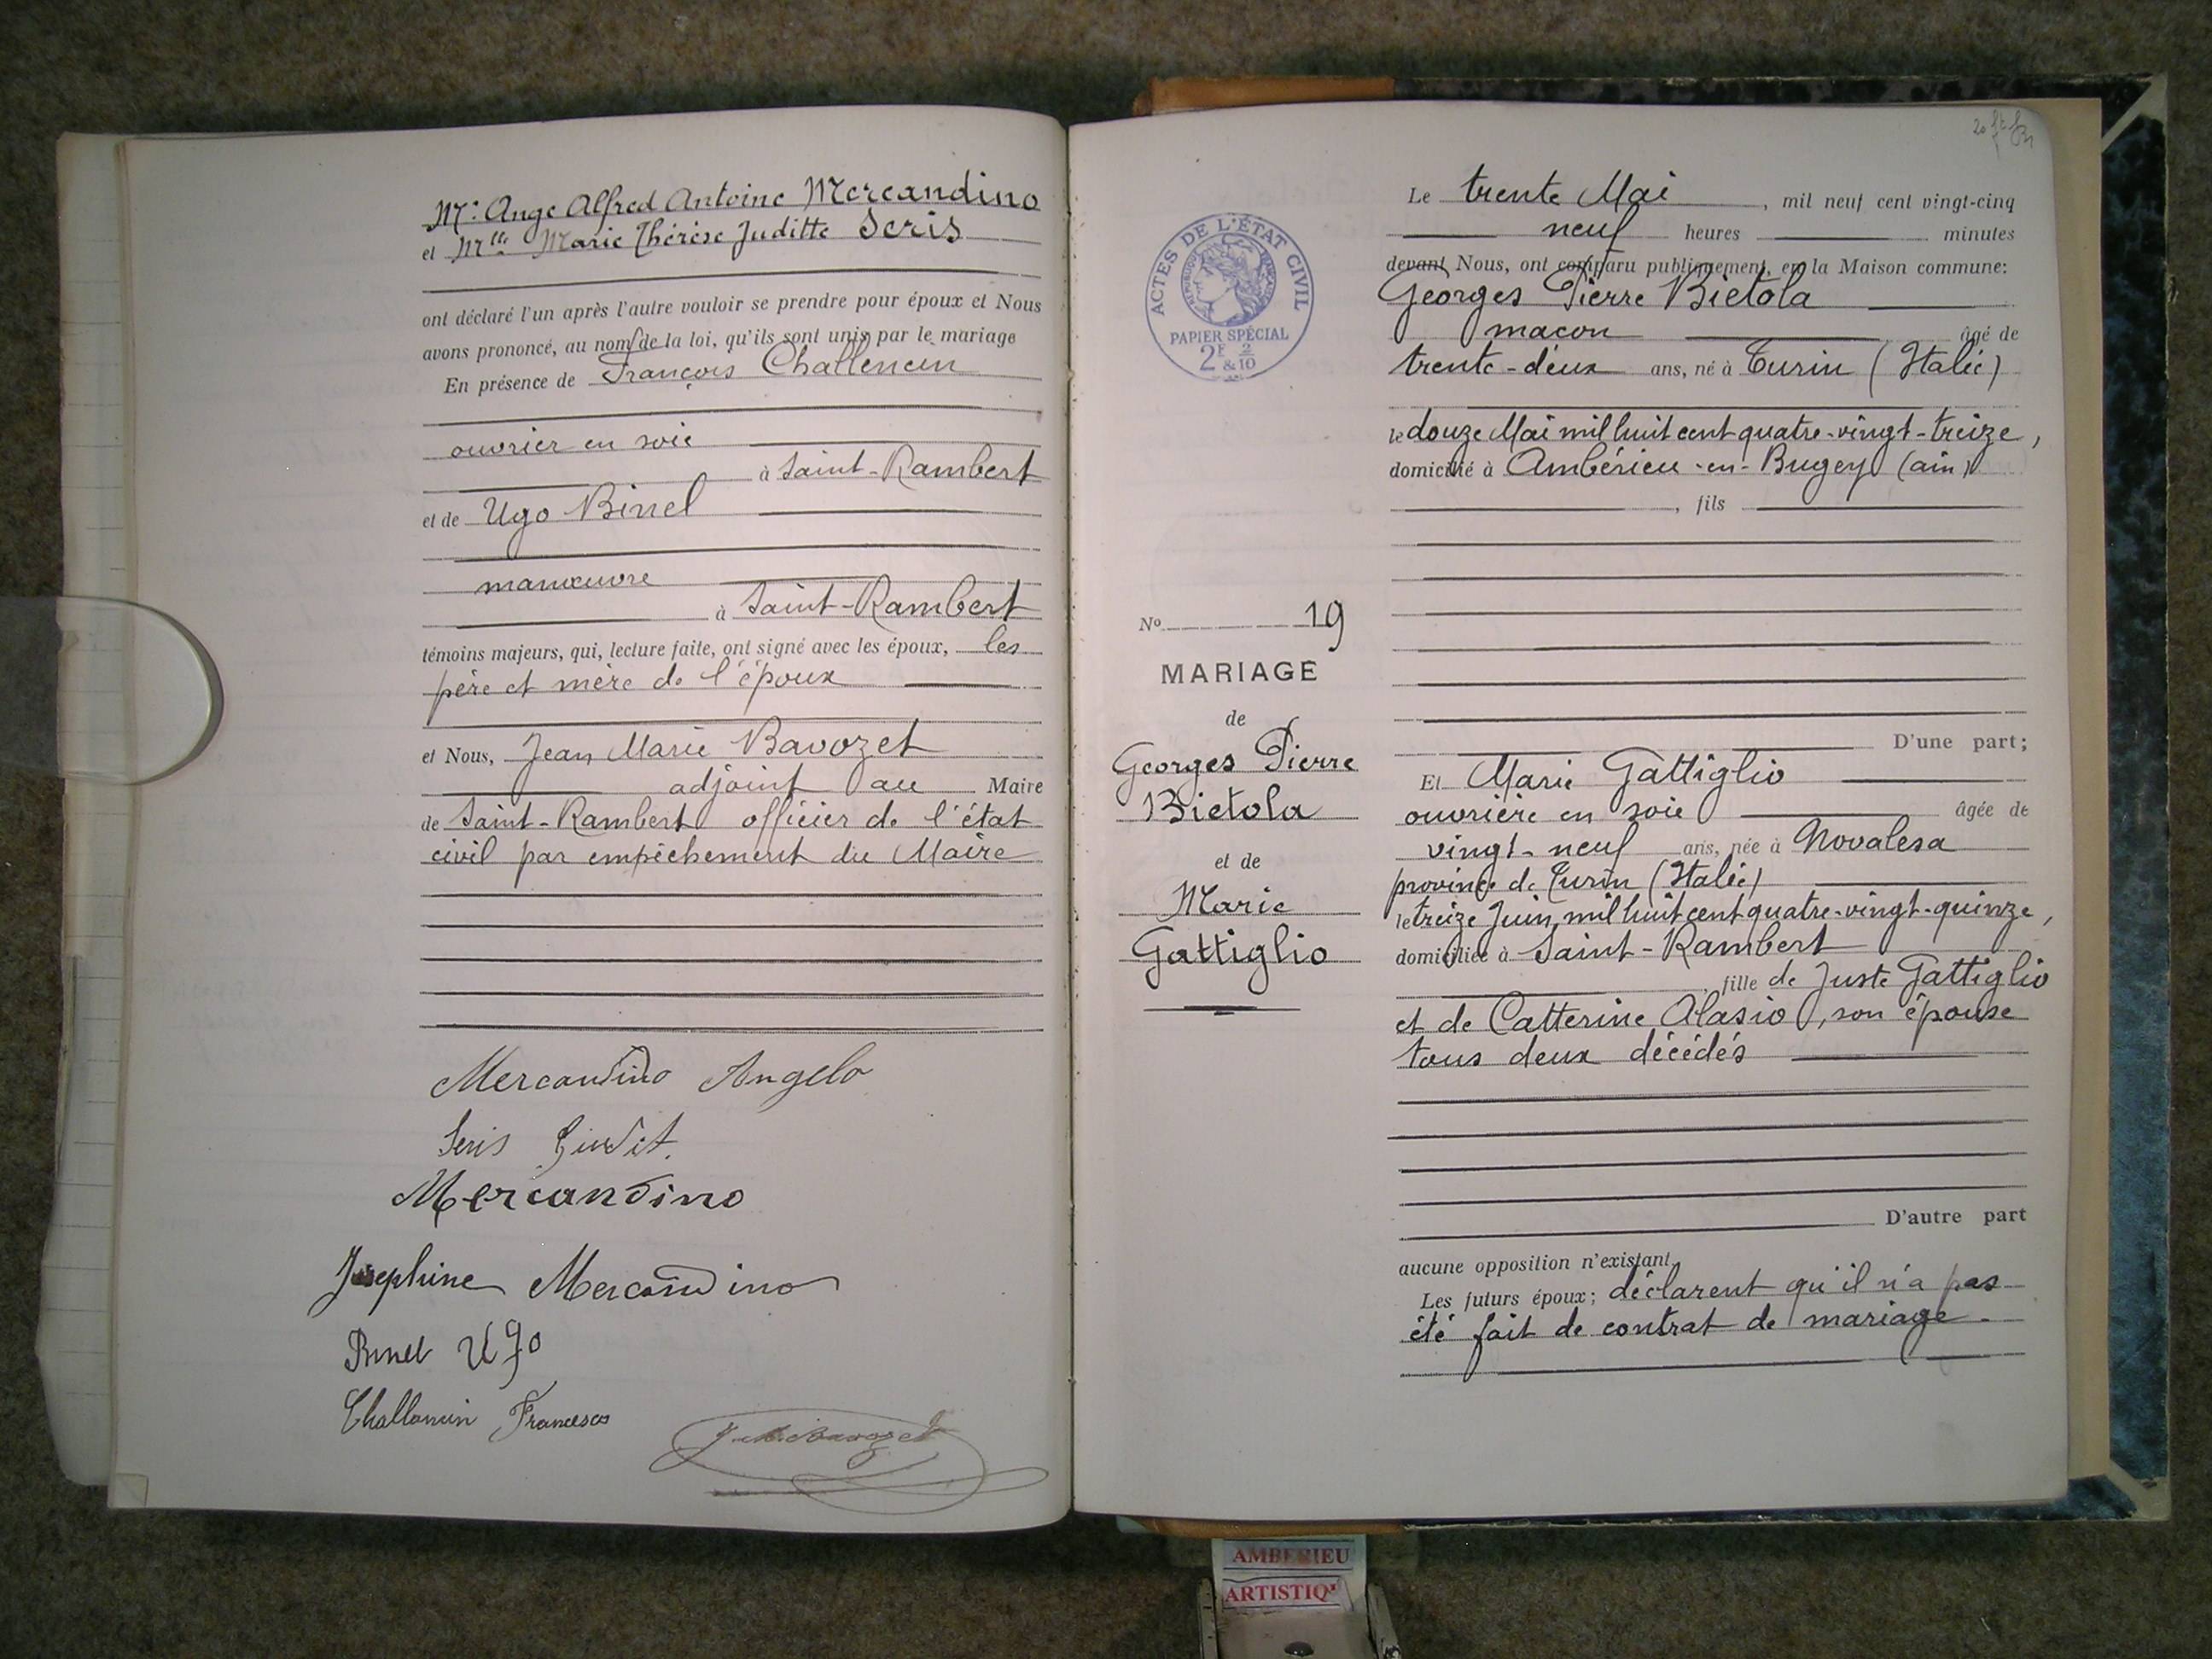 Mr. Ange Alfred Antoine Mercandino
et Mlle Marie Thérèse Juditte Seris
ont déclaré l'un après l'autre vouloir se prendre pour époux et Nous
avons prononcé, au nom de la loi, qu'ils sont unis par le mariage
En présence de François Challencin
ouvrier en soie
à Saint-Rambert
et de Ugo Binel
manœuvre
à Saint-Rambert
témoins majeurs, qui, lecture faite, ont signé avec les époux, les
père et mère de l'époux
et Nous, Jean Marie Bavozet
adjoint au Maire
de Saint-Rambert officier de l'état
civil par empêchement du Maire
Mercandino Angelo
Seris Giudit.
Mercandino
Josephine Mercandino
Binel Ugo
Challancin Francesco
J. M. Bavozet
ACTES DE L'ÉTAT CIVIL
RÉPUBLIQUE FRANÇAISE
PAPIER SPÉCIAL
2F 2
& 10
No 19
MARIAGE
de
Georges Pierre
Bietola
et de
Marie
Gattiglio
Le trente Mai, mil neuf cent vingt-cinq
neuf heures minutes
devant Nous, ont comparu publiquement, en la Maison commune:
Georges Pierre Bietola
macon âgé de
trente-deux ans, né à Turin (Italie)
le douze Mai mil huit cent quatre-vingt-treize,
domicilié à Ambérieu-en-Bugey (ain)
, fils
D'une part;
Et Marie Gattiglio
ouvrière en soie âgée de
vingt-neuf ans, née à Novalesa
province de Turin (Italie)
le treize Juin mil huit cent quatre-vingt-quinze,
domiciliée à Saint-Rambert
, fille de Juste Gattiglio
et de Catterine Alasio, son épouse
tous deux décédés
D'autre part
aucune opposition n'existant
Les futurs époux; déclarent qu'il n'a pas
été fait de contrat de mariage.
AMBERIEU
ARTISTIQ